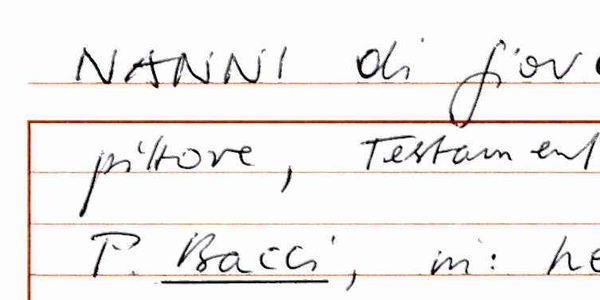 NANNI di Giov
pittore, Testament
P. Bacci, in: he